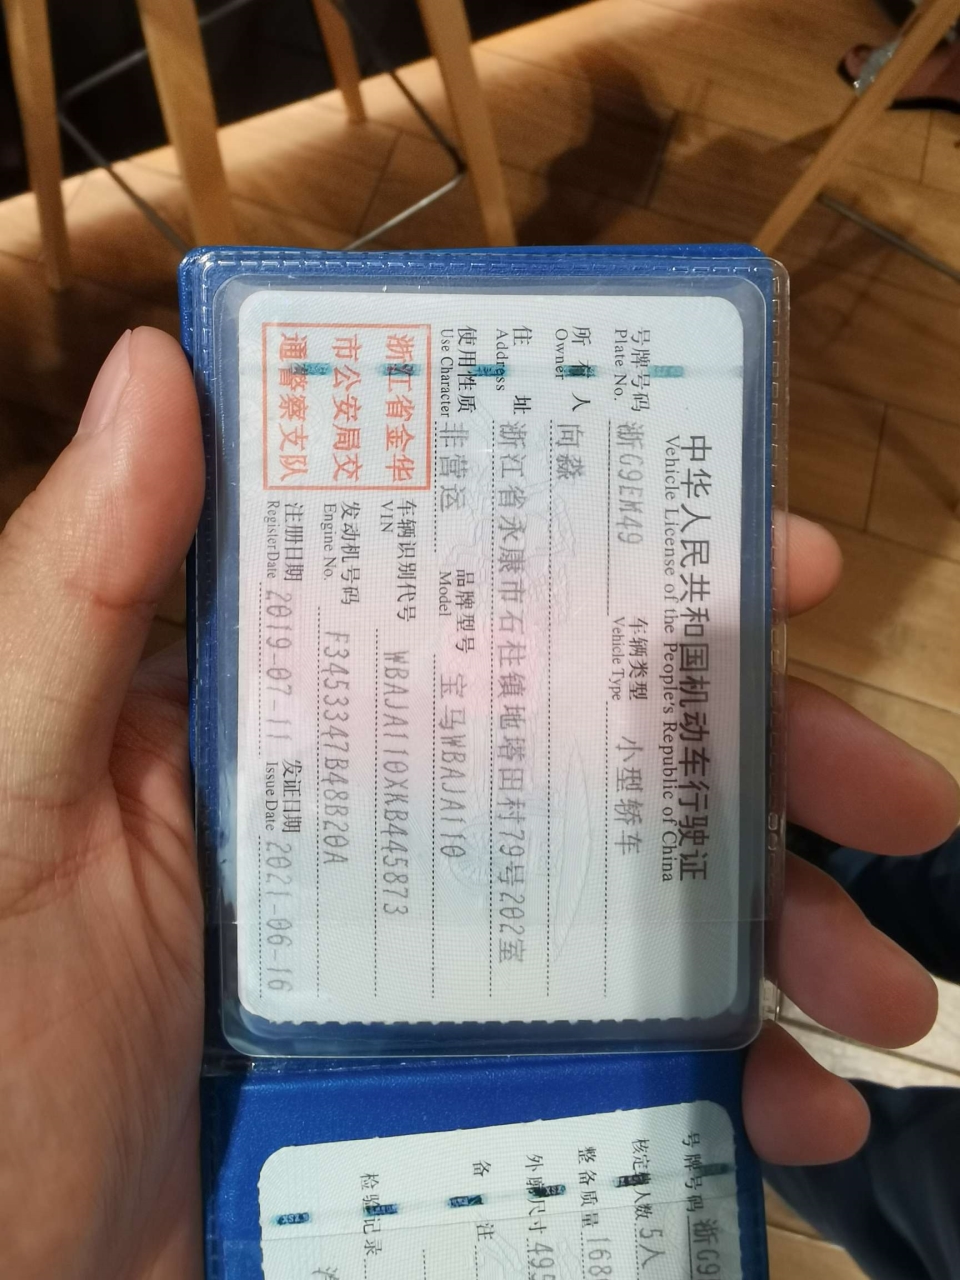 中华人民共和国机动车行驶证
Vehicle License of the People's Republic of China
号牌号码 浙G9EM49 车辆类型 小型轿车
Plate No. Vehicle Type
所有人 向淼
Owner
住址 浙江省永康市石柱镇地塔田村79号202室
Address
使用性质 非营运 品牌型号 宝马WBAJA110
Use Character Model
浙江省金华
市公安局交
通警察支队
车辆识别代号 WBAJA110XKB445873
VIN
发动机号码 F3453347B48B20A
Engine No.
注册日期 2019-07-11 发证日期 2021-06-16
Register Date Issue Date
号牌号码 浙G9
核定载人数 5人
整备质量 168
外廓尺寸 495
备注
检验记录